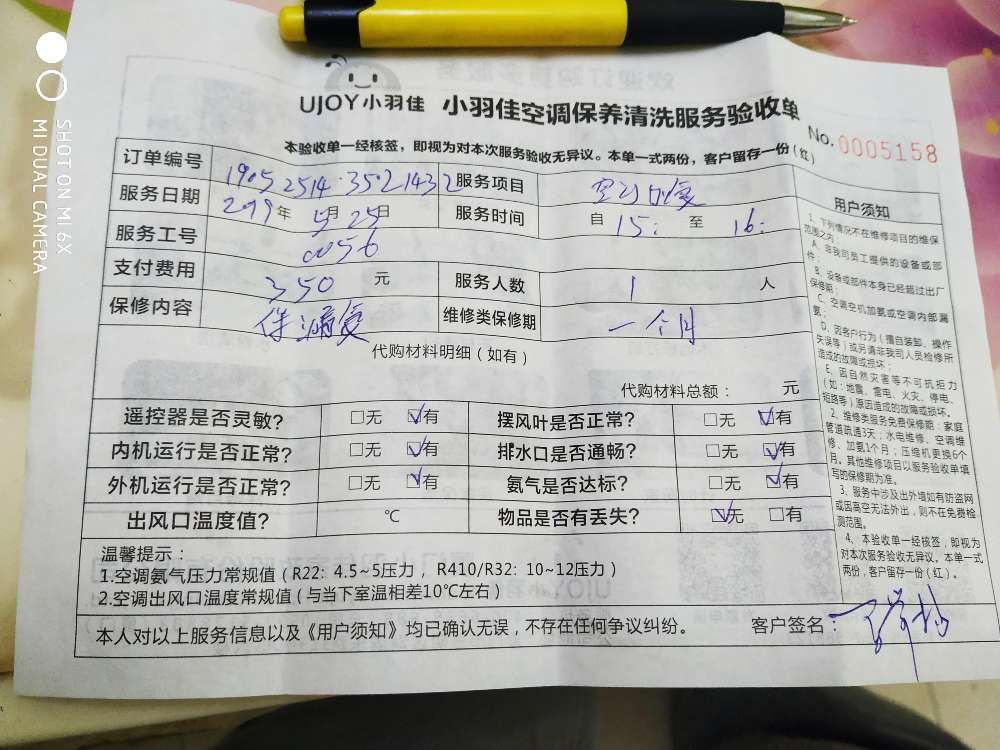 UJOY小羽佳 小羽佳空调保养清洗服务验收单
No. 0005158
本验收单一经核签，即视为对本次服务验收无异议。本单一式两份，客户留存一份（红）
订单编号 190525143521432 服务项目
服务日期 2019年 5月 25日 服务时间 自 15： 至 16：
服务工号 0056
支付费用 350 元 服务人数 1 人
保修内容 维修类保修期 一个月
代购材料明细（如有）
代购材料总额： 元
遥控器是否灵敏? □无 ☑有 摆风叶是否正常? □无 ☑有
内机运行是否正常? □无 ☑有 排水口是否通畅? □无 ☑有
外机运行是否正常? □无 ☑有 氨气是否达标? □无 ☑有
出风口温度值? ℃ 物品是否有丢失? ☑无 □有
温馨提示：
1.空调氨气压力常规值（R22：4.5~5压力，R410/R32：10~12压力）
2.空调出风口温度常规值（与当下室温相差10℃左右）
本人对以上服务信息以及《用户须知》均已确认无误，不存在任何争议纠纷。 客户签名：
用户须知
1、下列情况不在维修项目的维保
范围之内：
A、非我司员工提供的设备或部
件；
B、设备或部件本身已经超过出厂
保修期；
C、空调空机加氨或空调内部漏
氨；
D、因客户行为（擅自装卸、操作
失误等）或另请非我司人员检修所
造成的故障或损坏；
E、因自然灾害等不可抗拒力
（如：地震、雷电、火灾、停电、
短路等）原因造成的故障或损坏。
2、维修类服务免费保修期：家庭
管道疏通3天；水电维修、空调维
修、加氨1个月；压缩机更换6个
月。其他维修项目以服务验收单填
写的保修期为准。
3、服务中涉及出外墙如有防盗网
或因高空无法外出，则不在免费检
测范围。
4、本验收单一经核签，即视为
对本次服务验收无异议。本单一式
两份，客户留存一份（红）。
SHOT ON MI 6X
MI DUAL CAMERA